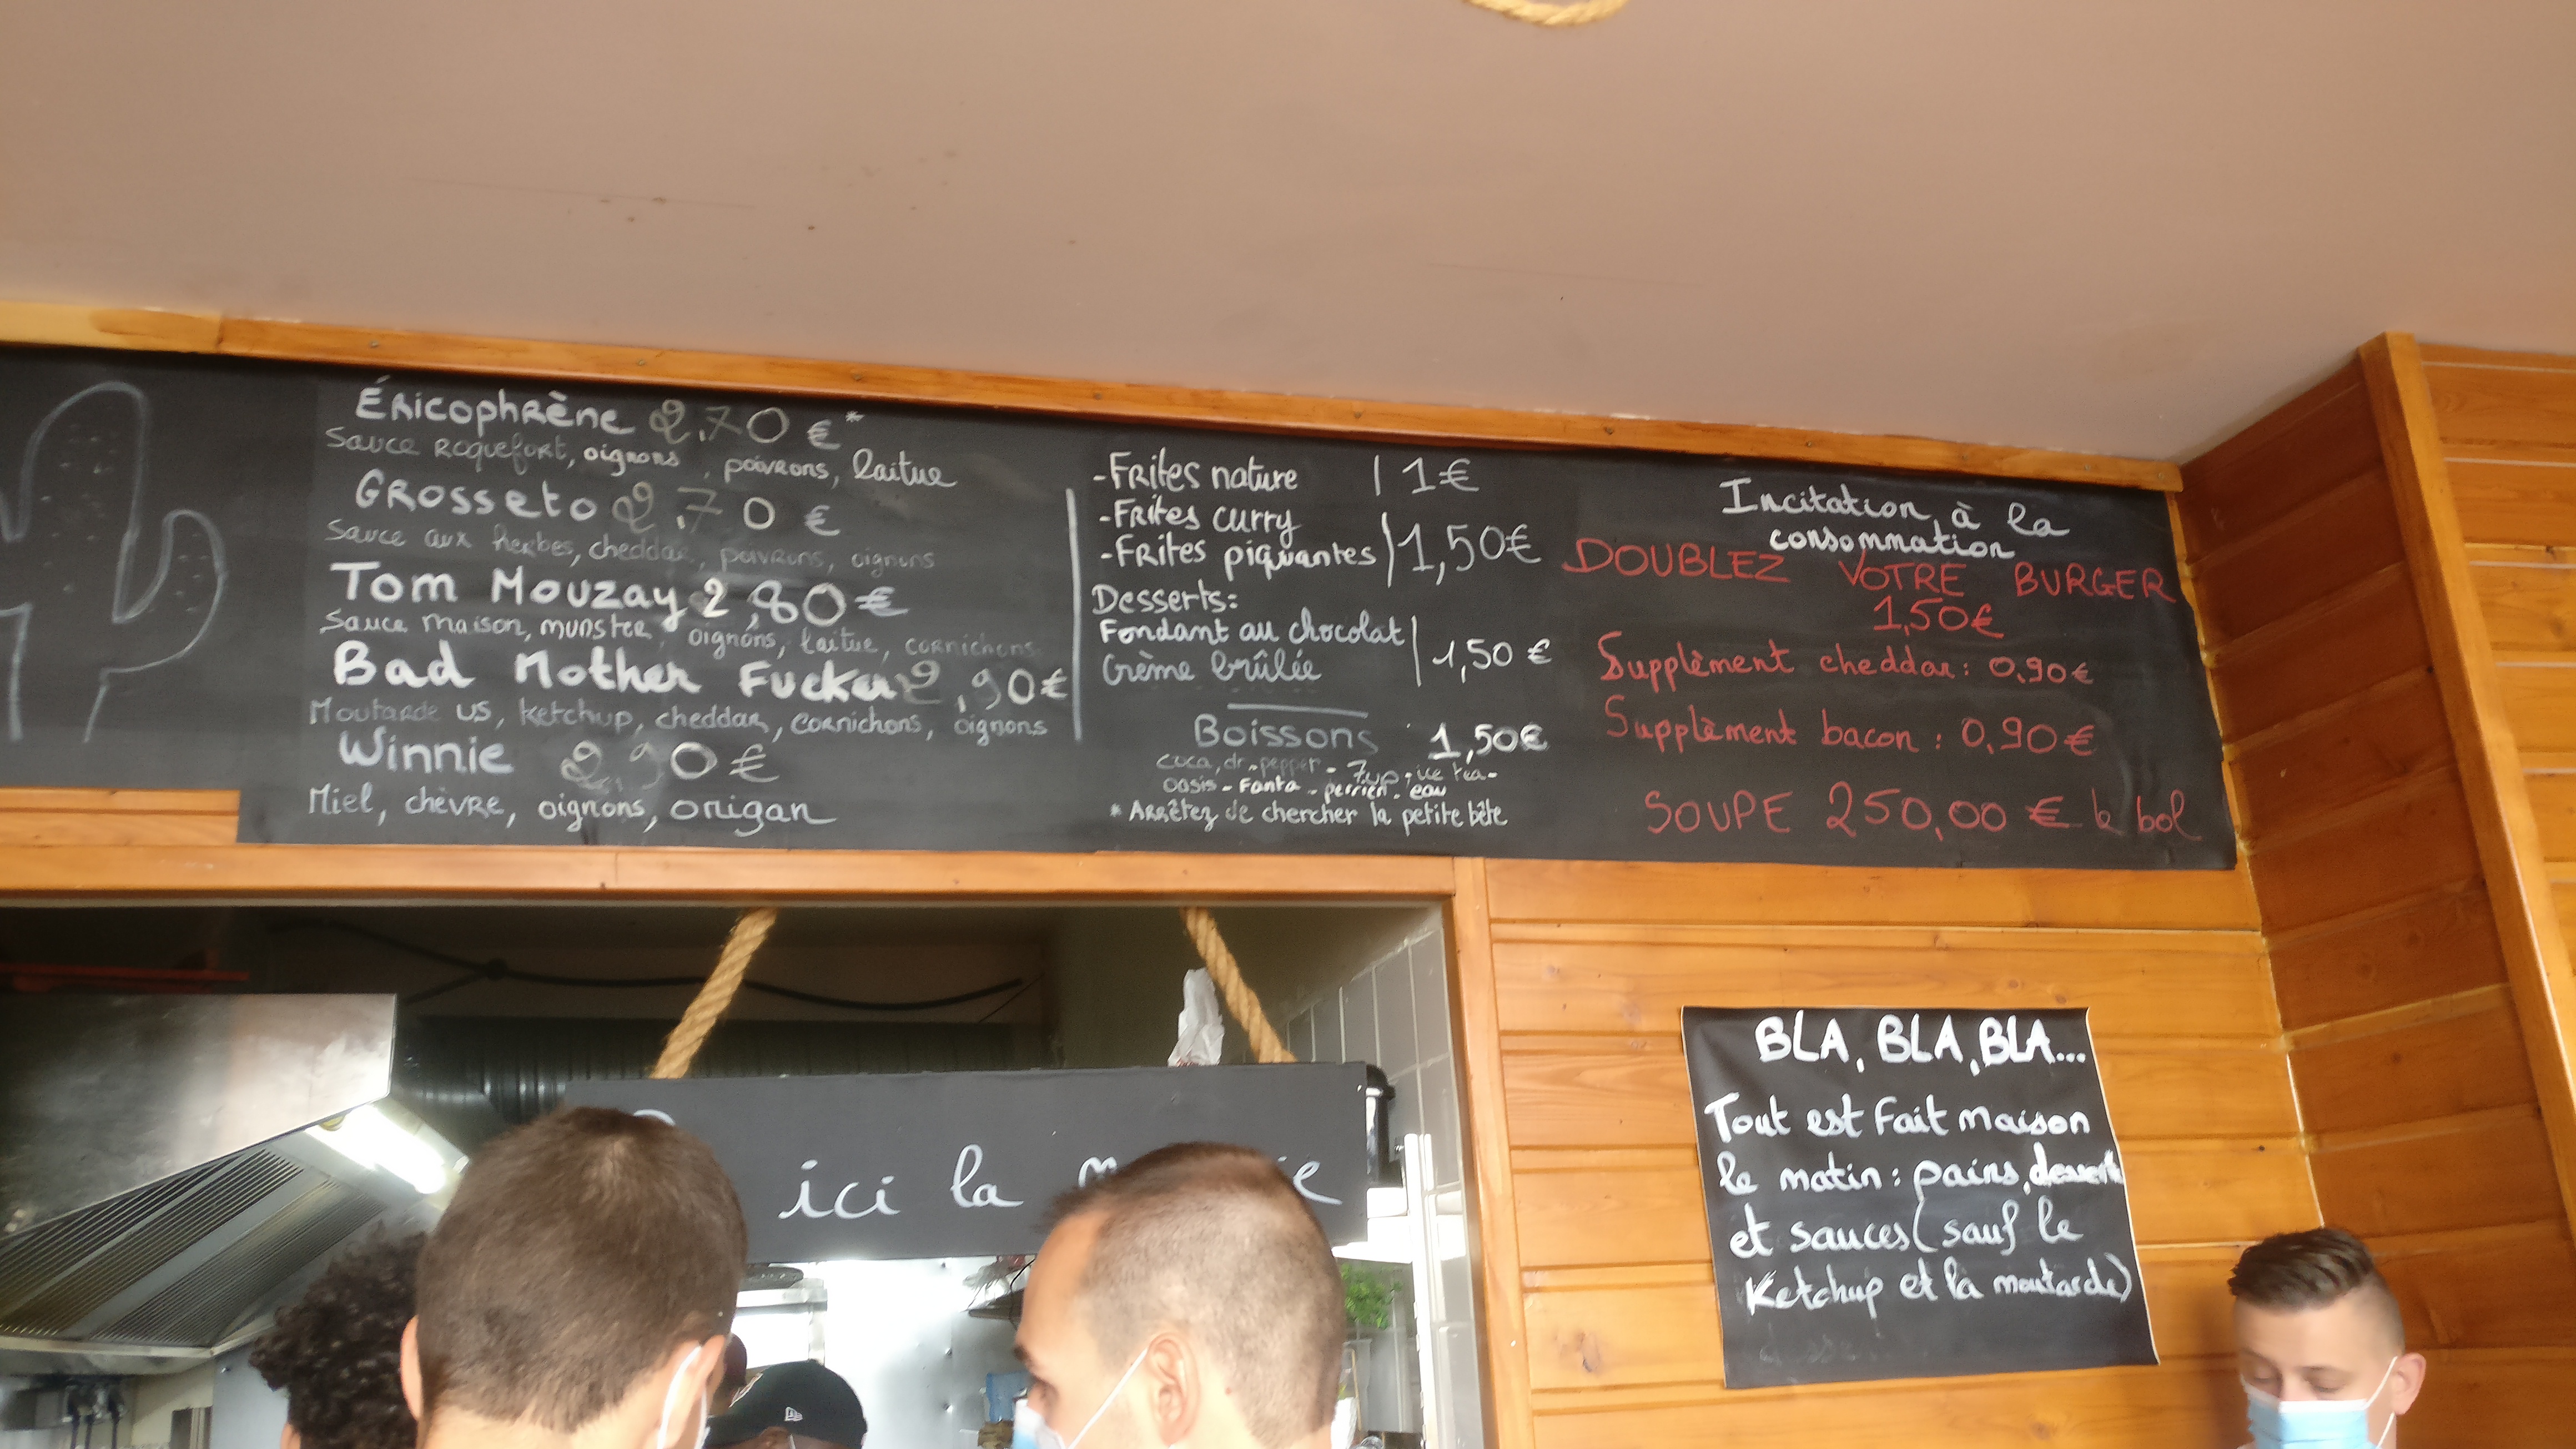 Éricophrène 2.70 €*
Sauce Roquefort, oignons, poivrons, laitue
Grosseto 2.70 €
Sauce aux herbes, cheddar, poivrons, oignons
Tom Mouzay 2,80 €
Sauce maison, munster oignons, laitue, cornichons
Bad Mother Fucker 2,90 €
Moutarde US, ketchup, cheddar, cornichons, oignons
Winnie 2,90 €
Miel, chèvre, oignons, origan
-Frites nature | 1€
-Frites curry
-Frites piquantes | 1,50€
Desserts:
Fondant au chocolat
Crème brûlée | 1,50 €
Boissons 1,50€
coca, dr-pepper - 7up - ice tea -
oasis - Fanta - perrier - eau
* Arrêtez de chercher la petite bête
Incitation à la
consommation
DOUBLEZ VOTRE BURGER
1,50€
Supplèment cheddar: 0,90€
Supplèment bacon : 0,90 €
SOUPE 250,00 € le bol
BLA, BLA, BLA...
Tout est fait maison
le matin : pains, desserts
et sauces (sauf le
Ketchup et la moutarde)
ici la